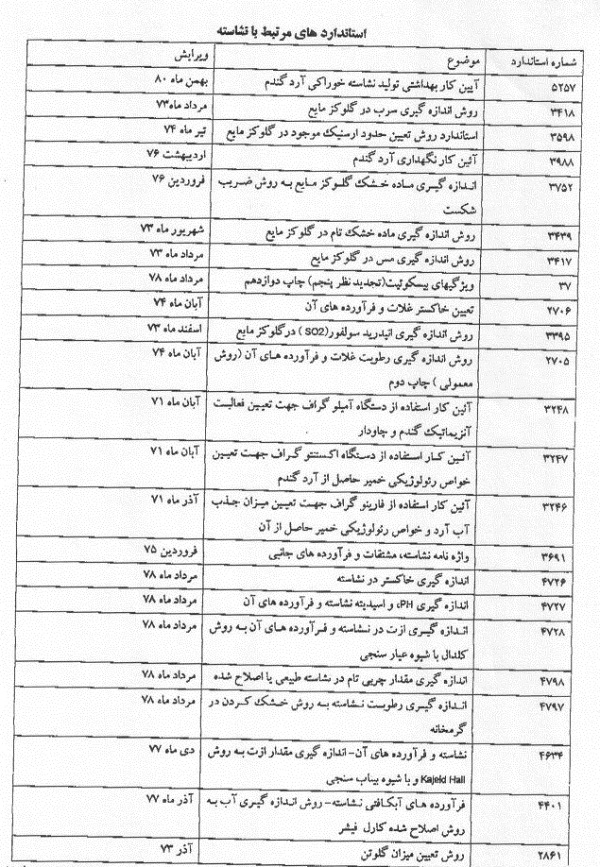 استاندارد های مرتبط با نشاسته
شماره استاندارد موضوع ویرایش
۵۲۵۷ آیین کار بهداشتی تولید نشاسته خوراکی آرد گندم بهمن ماه ۸۰
۳۴۱۸ روش اندازه گیری سرب در گلوکز مایع مرداد ماه۷۳
۳۵۹۸ استاندارد روش تعیین حدود ارسنیک موجود در گلوکز مایع تیر ماه ۷۴
۳۹۸۸ آئین کار نگهداری آرد گندم اردیبهشت ۷۶
۳۷۵۲ اندازه گیری ماده خشک گلوکز مایع به روش ضریب فروردین ۷۶
شکست
۳۴۳۹ روش اندازه گیری ماده خشک تام در گلوکز مایع شهریور ماه ۷۳
۳۴۱۷ روش اندازه گیری مس در گلوکز مایع مرداد ماه ۷۳
۳۷ ویژگیهای بیسکوئیت(تجدید نظر پنجم) چاپ دوازدهم مرداد ماه ۷۸
۲۷۰۶ تعیین خاکستر غلات و فرآورده های آن آبان ماه ۷۴
۳۳۹۵ روش اندازه گیری انیدرید سولفور(SO2 ) درگلوکز مایع اسفند ماه ۷۳
۲۷۰۵ روش اندازه گیری رطوبت غلات و فرآورده های آن (روش آبان ماه ۷۴
معمولی ) چاپ دوم
۳۲۴۸ آئین کار استفاده از دستگاه آمیلو گراف جهت تعیین فعالیت آبان ماه ۷۱
آنزیماتیک گندم و چاودار
۳۲۴۷ آئین کار استفاده از دستگاه اکستنتو گراف جهت تعیین آبان ماه ۷۱
خواص رئولوژیکی خمیر حاصل از آرد گندم
۳۲۴۶ آئین کار استفاده از فارینو گراف جهت تعیین میزان جذب آذر ماه ۷۱
آب آرد و خواص رئولوژیکی خمیر حاصل از آن
۳۶۹۱ واژه نامه نشاسته، مشتقات و فرآورده های جانبی فروردین ۷۵
۴۷۲۶ اندازه گیری خاکستر در نشاسته مرداد ماه ۷۸
۴۷۲۷ اندازه گیری PH، و اسیدیته نشاسته و فرآورده های آن مرداد ماه ۷۸
۴۷۲۸ اندازه گیری ازت در نشاسته و فرآورده های آن به روش مرداد ماه ۷۸
کلدال با شیوه عیار سنجی
۴۷۹۸ اندازه گیری مقدار چربی تام در نشاسته طبیعی یا اصلاح شده مرداد ماه ۷۸
۴۷۹۷ اندازه گیری رطوبت نشاسته به روش خشک کردن در مرداد ماه ۷۸
گرمخانه
۴۶۳۴ نشاسته و فرآورده های آن- اندازه گیری مقدار ازت به روش دی ماه ۷۷
Kajeld Hall و با شیوه بیناب سنجی
۴۴۰۱ فرآورده های آبکافتی نشاسته- روش اندازه گیری آب به آذر ماه ۷۷
روش اصلاح شده کارل فیشر
۲۸۶۱ روش تعیین میزان گلوتن آذر ۷۳